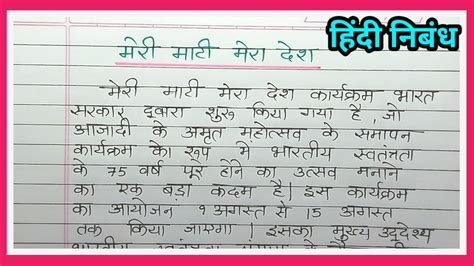 हिंदी निबंध
मेरी माटी मेरा देश
मेरी माटी मेरा देश कार्यक्रम भारत
सरकार द्वारा शुरू किया गया है, जो
आजादी के अमृत महोत्सव के समापन
कार्यक्रम के रूप में भारतीय स्वतंत्रता
के 75 वर्ष पूरे होने का उत्सव मनाने
का एक बड़ा कदम है। इस कार्यक्रम
का आयोजन 9 अगस्त से 15 अगस्त
तक किया जाएगा। इसका मुख्य उद्देश्य